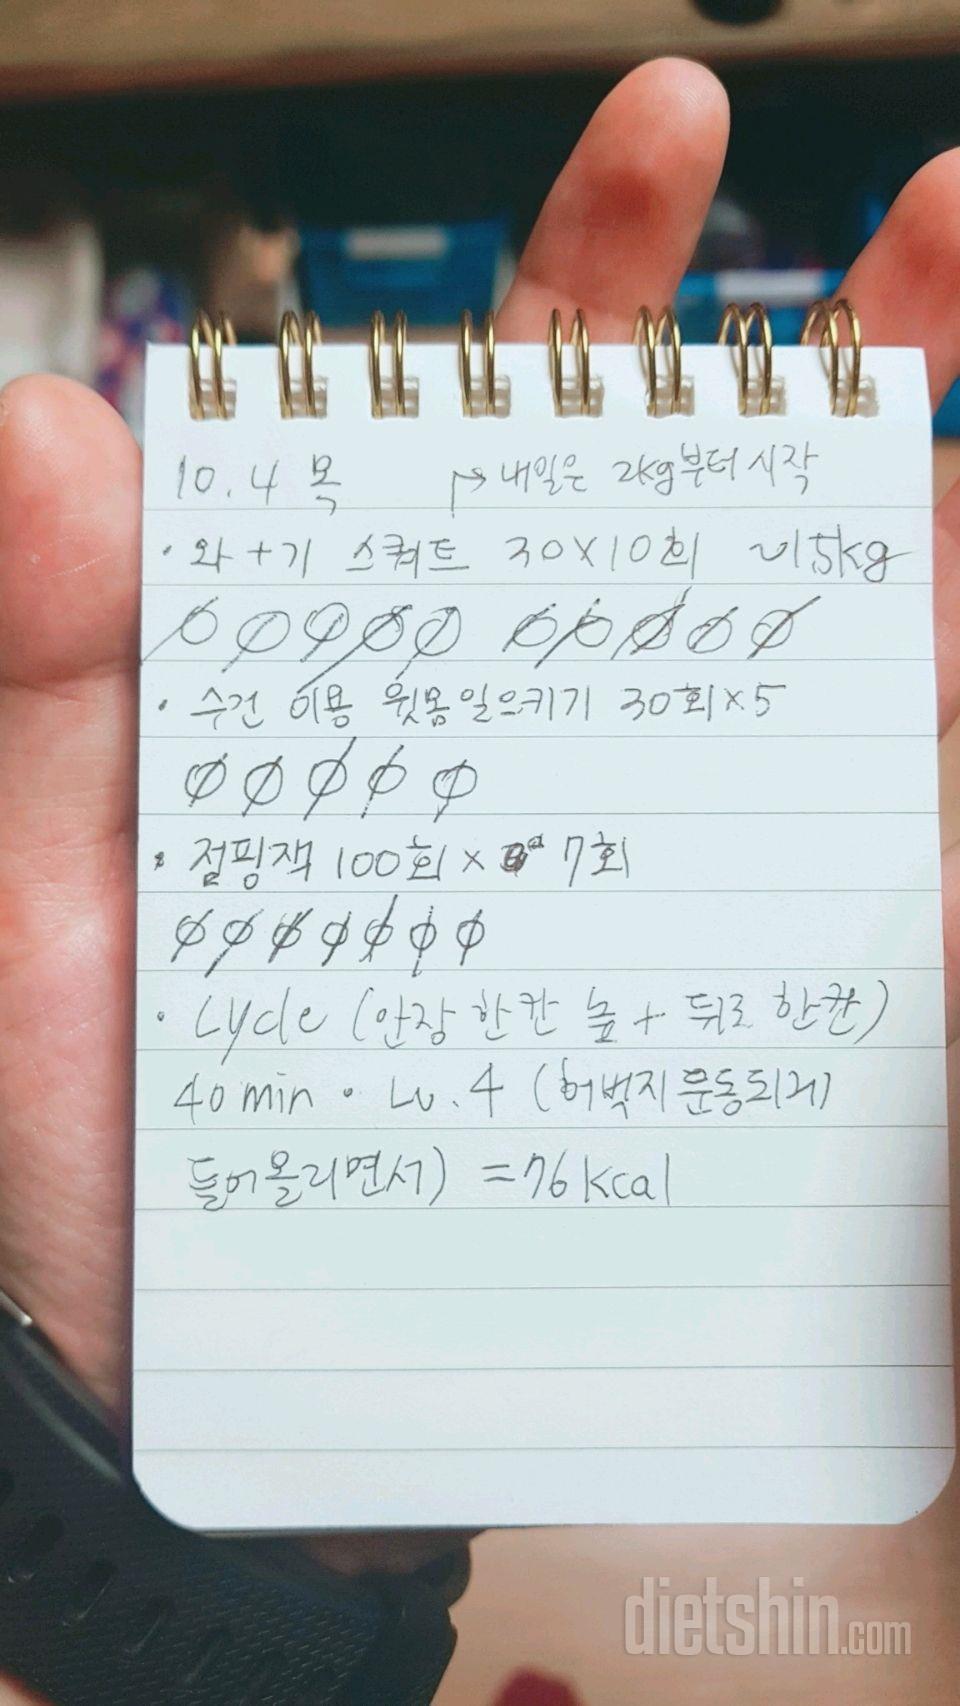 10.4 목 → 내일은 2kg부터 시작
· 와+기 스쿼트 30×10회 ~1.5kg
· 수건 이용 윗몸일으키기 30회×5
· 점핑잭 100회 × 7회
· Cycle (안장 한칸 높 + 뒤로 한칸)
40min · Lv.4 (허벅지 운동되게
들어올리면서) =76kcal
dietshin.com